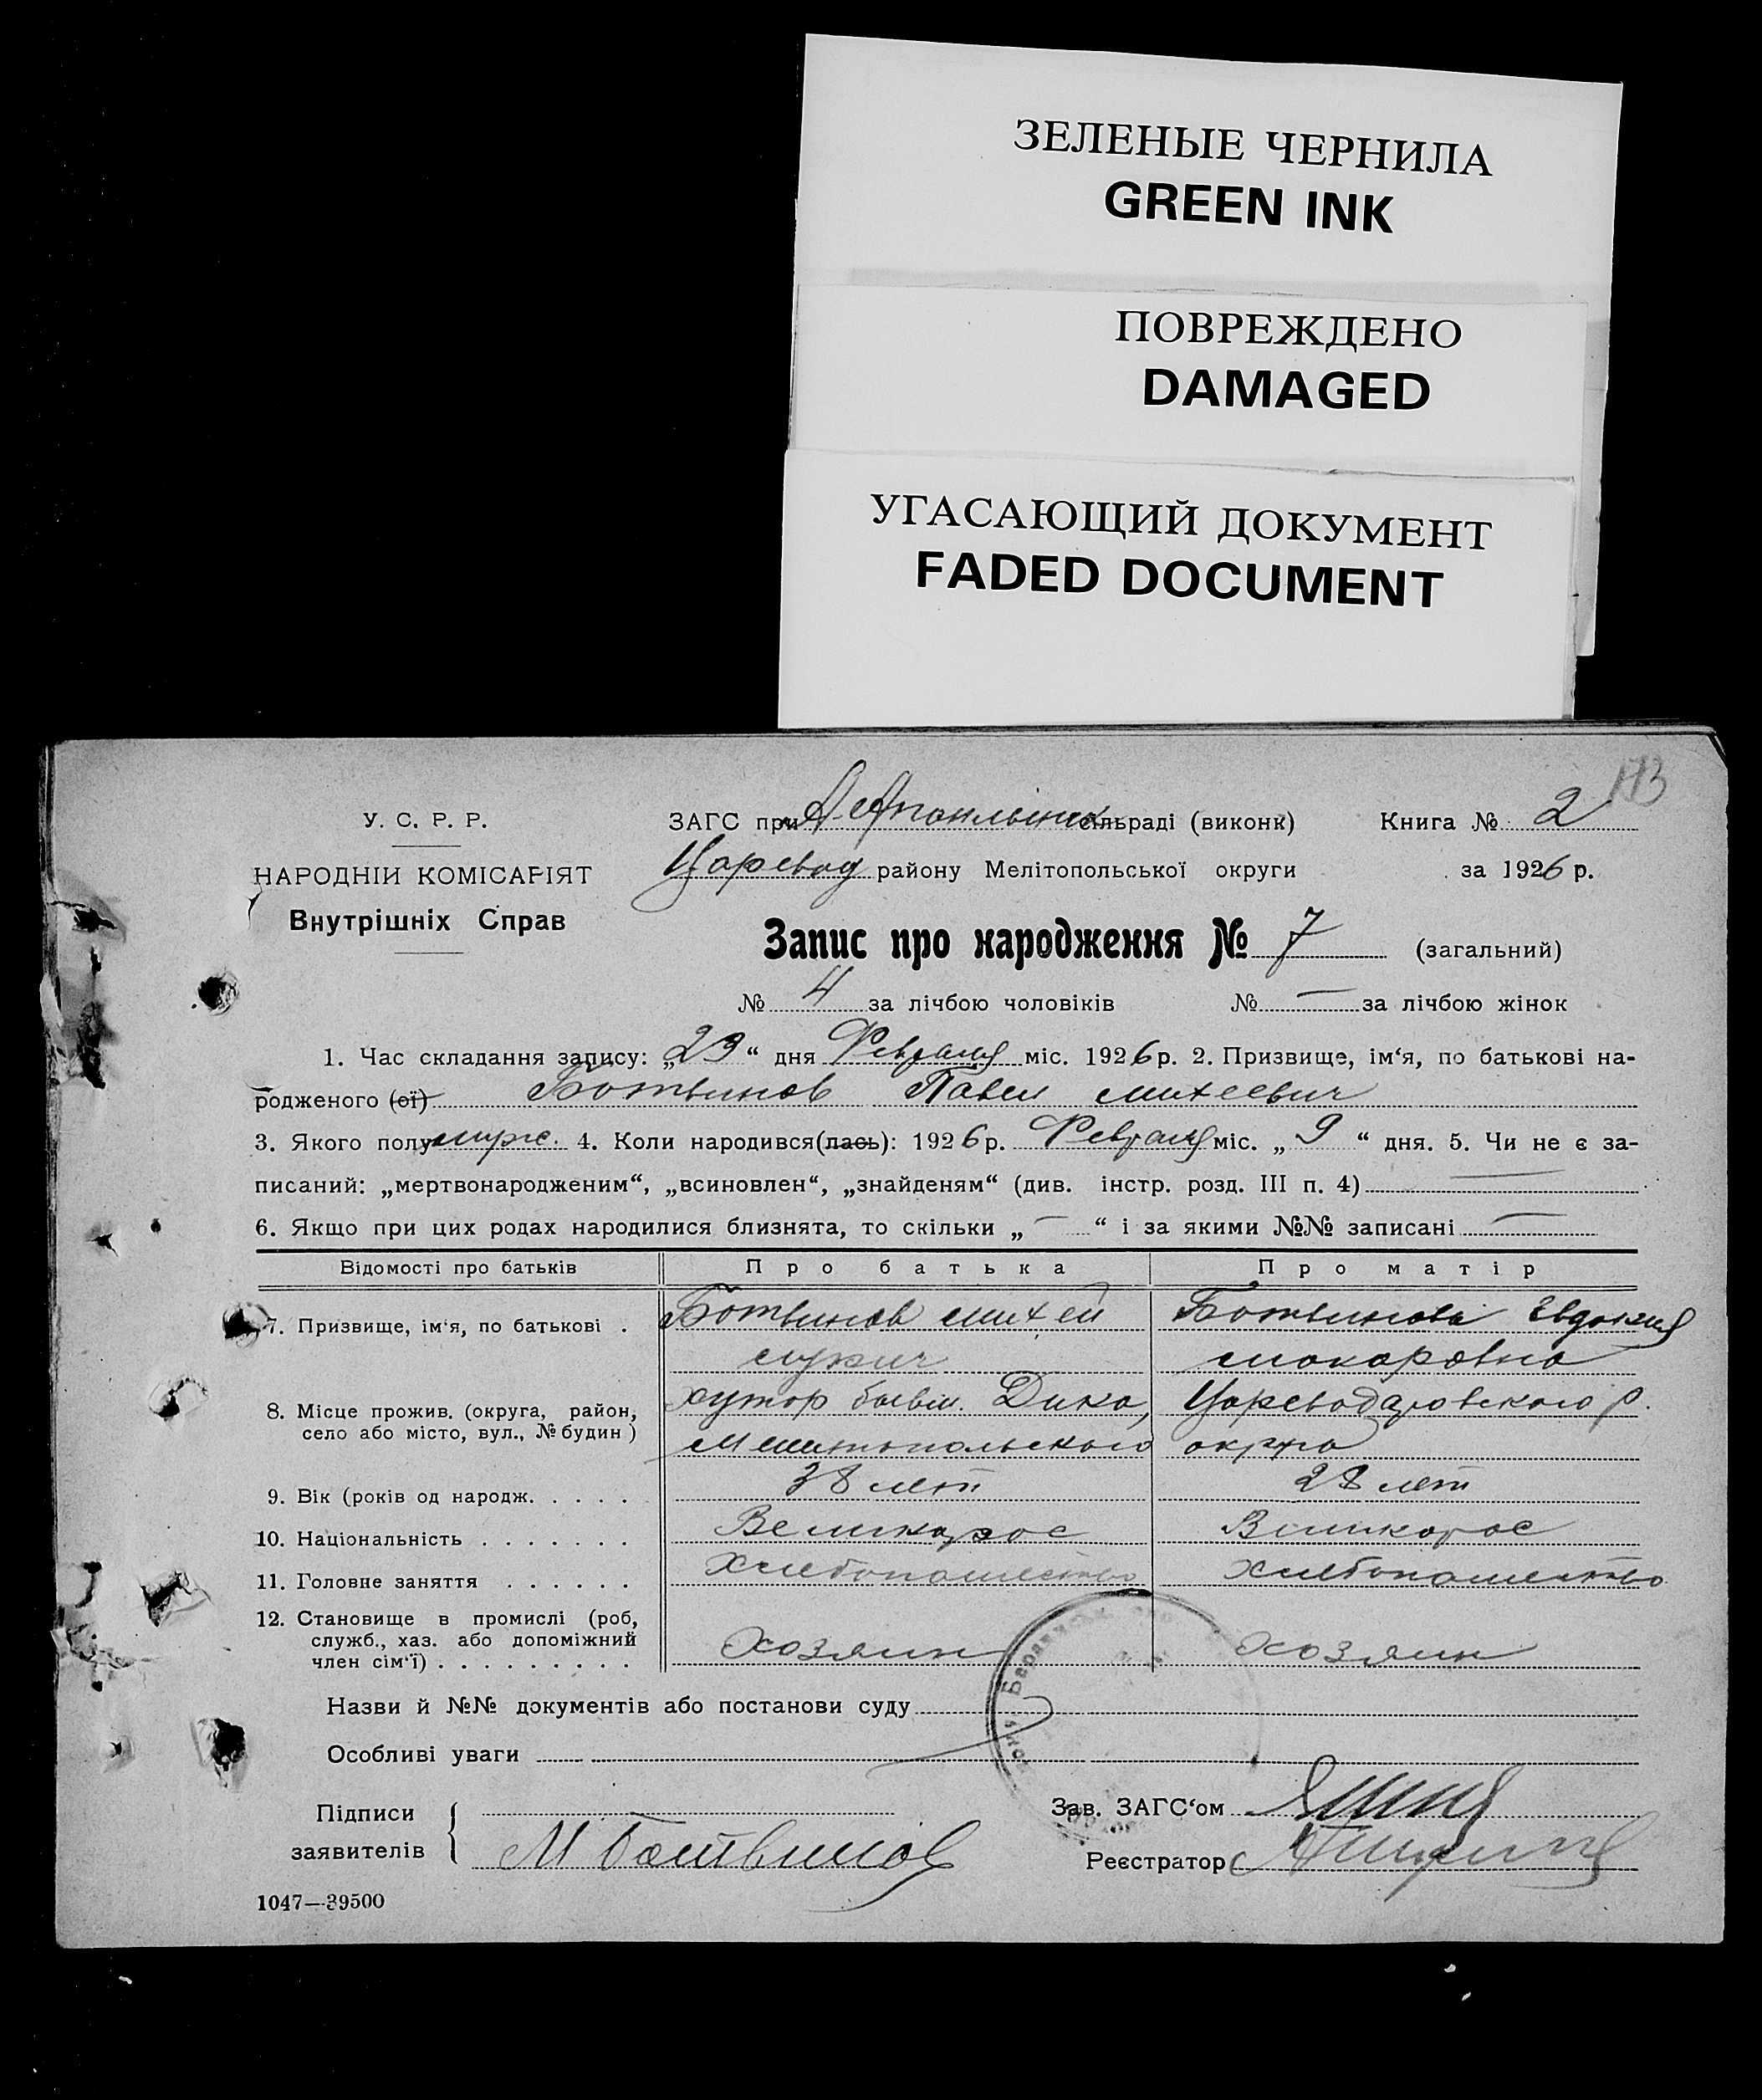 ЗЕЛЕНЫЕ ЧЕРНИЛА
GREEN INK
ПОВРЕЖДЕНО
DAMAGED
УГАСАЮЩИЙ ДОКУМЕНТ
FADED DOCUMENT
У. С. Р. Р.
ЗАГС при сільраді (виконк) Книга № 2
НАРОДНІИ КОМІСАРІЯТ
Царевод району Мелітопольської округи за 1926 р.
Внутрішніх Справ
Запис про народження № 7 (загальний)
№ 4 за лічбою чоловіків № — за лічбою жінок
1. Час складання запису: „29“ дня Февраля міс. 1926 р. 2. Призвище, ім‘я, по батькові на-
родженого (ої) Ботвинов Павел Михеевич
3. Якого полу муж. 4. Коли народився(лась): 1926 р. Февраля міс. „9“ дня. 5. Чи не є за-
писаний: „мертвонародженим“, „всиновлен“, „знайденям“ (див. інстр. розд. III п. 4) —
6. Якщо при цих родах народилися близнята, то скільки „—“ і за якими №№ записані —
Відомості про батьків Про батька Про матір
7. Призвище, ім‘я, по батькові . Ботвинов Михей Ботвинова Евдокия
Макаровна
8. Місце прожив. (округа, район, хутор бывш. Дика, Царевода р.
село або місто, вул., № будин) Мелитопольского округа
9. Вік (років од народж. . . . . 38 лет 28 лет
10. Національність . . . . . . . Великорос Великорос
11. Головне заняття . . . . . . Хлебопашество Хлебопашество
12. Становище в промислі (роб,
служб., хаз. або допоміжний Хозяин Хозяин
член сім‘ї) . . . . . . . . .
Назви й №№ документів або постанови суду
Особливі уваги
Підписи Зав. ЗАГС‘ом
заявителів М Ботвинов Реєстратор
1047—39500